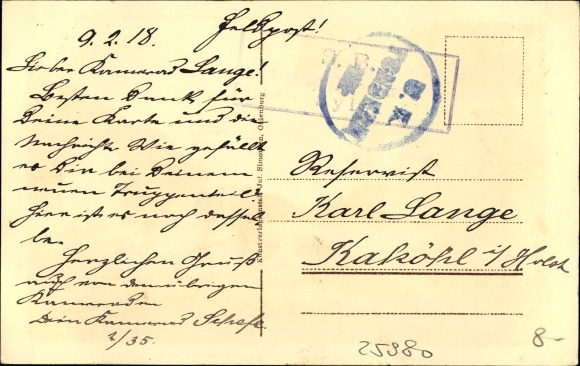 Feldpost!
9.2.18.
Lieber Kamerad Lange!
Besten Dank für
Deine Karte und die
Nachricht. Wie gefällt
es Dir bei Deinem
neuen Truppenteil?
Hier ist es noch dassel
be.
Herzlichen Gruß
auch von den übrigen
Kameraden
Dein Kamerad
Reservist
Karl Lange
Kaköhl i/Holst
25980
8-